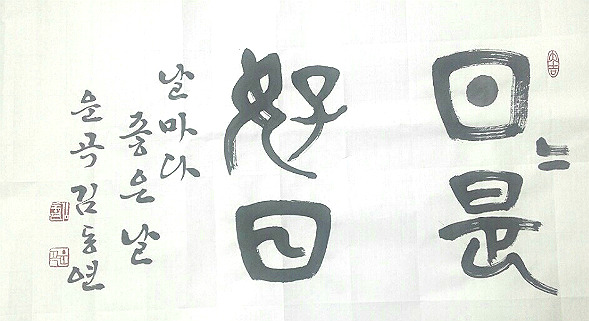 日〻是
好日
날마다
좋은 날
운곡 김동연